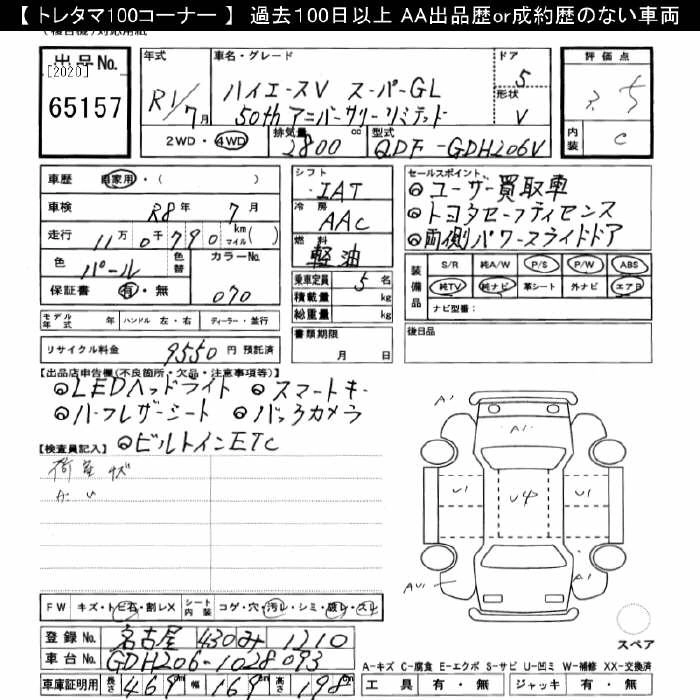 【 トレタマ100コーナー 】 過去100日以上 AA出品歴or成約歴のない車両
出品No.
[2020]
65157
年式 R1/7月
車名・グレード
ハイエースV スーパーGL
50th アニバーサリーリミテッド
ドア 5
形状 V
評価点
内装 C
2WD・4WD 排気量 2800 cc 型式 QDF-GDH206V
車歴 自家用・( )
車検 R8年 7月
走行 11万0千790 km マイル( )
色 パール 色替 カラーNo. 070
保証書 有・無
シフト IAT
冷房 AAC
燃料 軽油
乗車定員 5名
積載量 kg
総重量 kg
書類期限
月 日
セールスポイント
ユーザー買取車
トヨタセーフティセンス
両側パワースライドドア
装備品 S/R 純A/W P/S P/W ABS
純TV 純ナビ 革シート 外ナビ エアB
ナビ型番:
後日品
モデル年式 年 ハンドル 左・右 ディーラー・並行
リサイクル料金 9550 円 預託済
【出品店申告欄(不良箇所・欠品・注意事項等)】
LEDヘッドライト スマートキー
ハーフレザーシート バックカメラ
ビルトインETC
【検査員記入】
荷室状
A1
A1
U1 U4 U1
A1
FW キズ・トビ石・割レX シート内装 コゲ・穴・汚レ・シミ・破レ・スレ
登録No. 名古屋 430 み 1210
車台No. GDH206-1028093
車庫証明用 長さ 469 cm 幅 169 cm 高さ 198 cm
スペア
A-キズ C-腐食 E-エクボ S-サビ U-凹ミ W-補修 XX-交換済
工具 有・無 ジャッキ 有・無